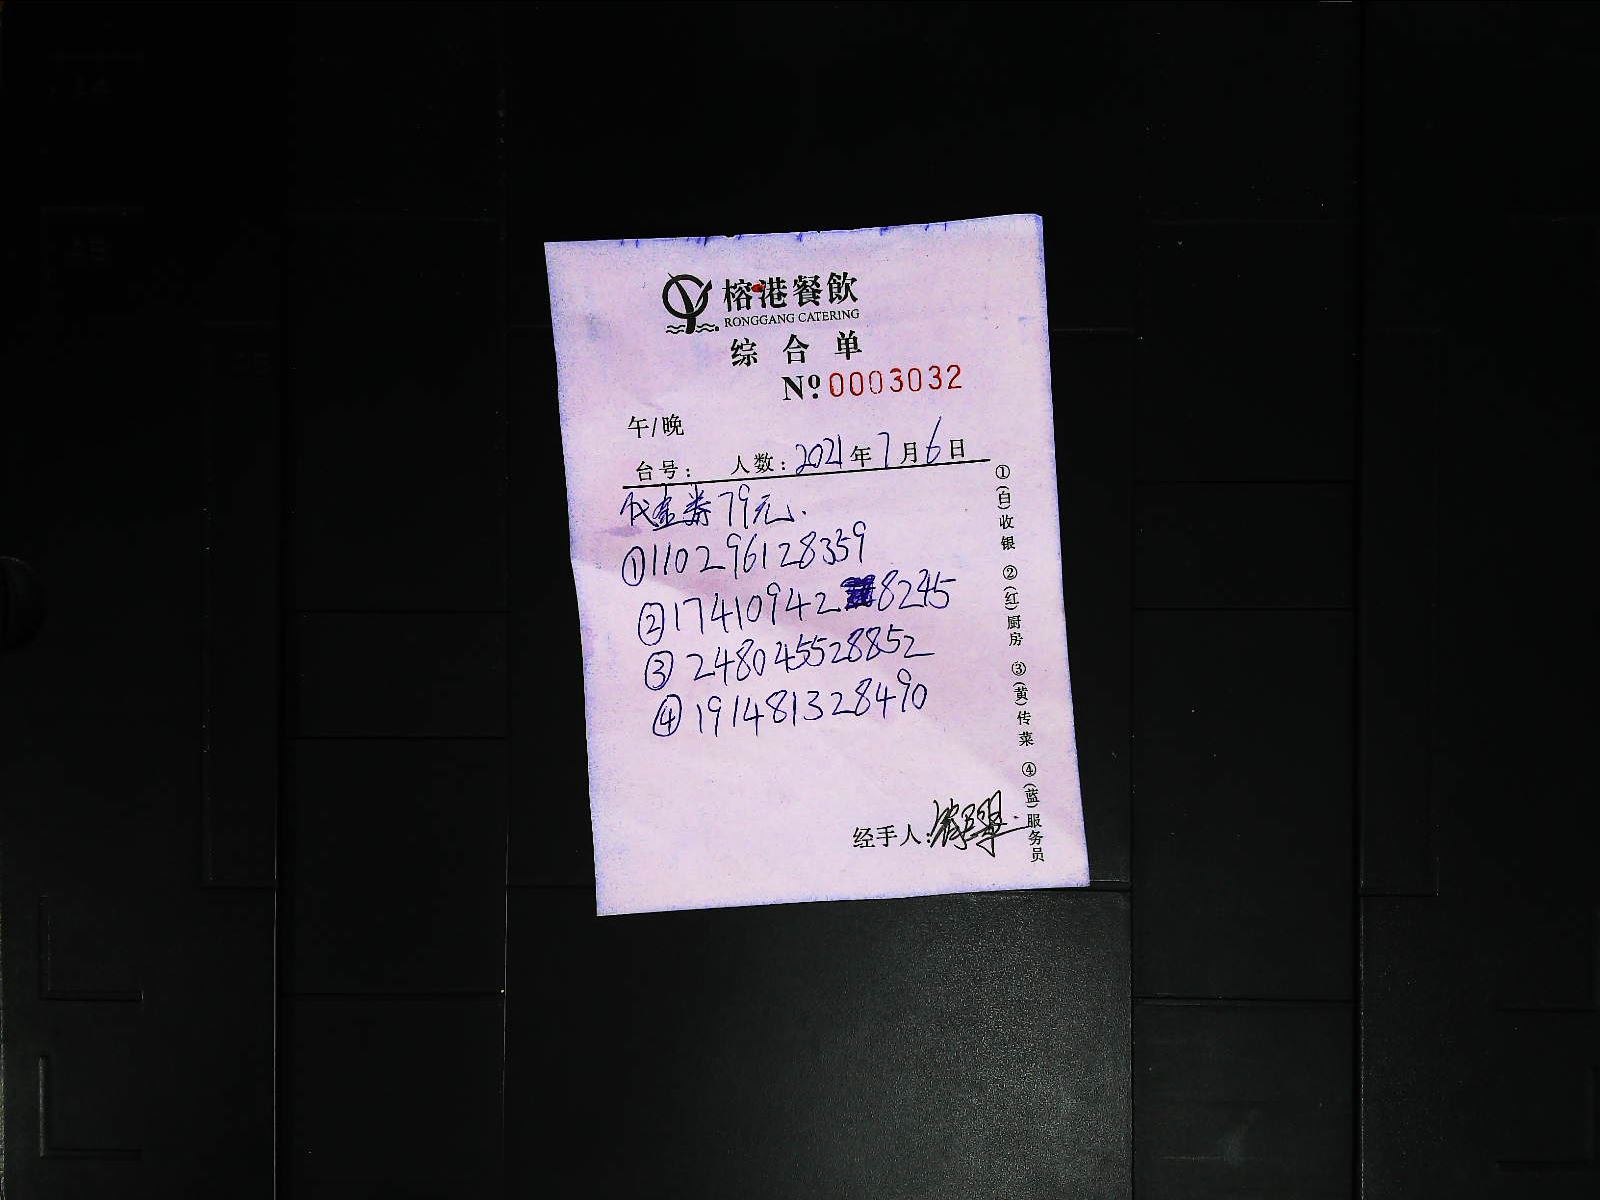 榕港餐飲
RONGGANG CATERING
综合单
№:0003032
午/晚
台号: 人数: 2021年7月6日
代金券79元.
①110296128359
②174109428245
③248045528852
④191481328490
经手人:
①(白)收银 ②(红)厨房 ③(黄)传菜 ④(蓝)服务员